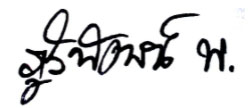 ภูริพัฒน์ พ.